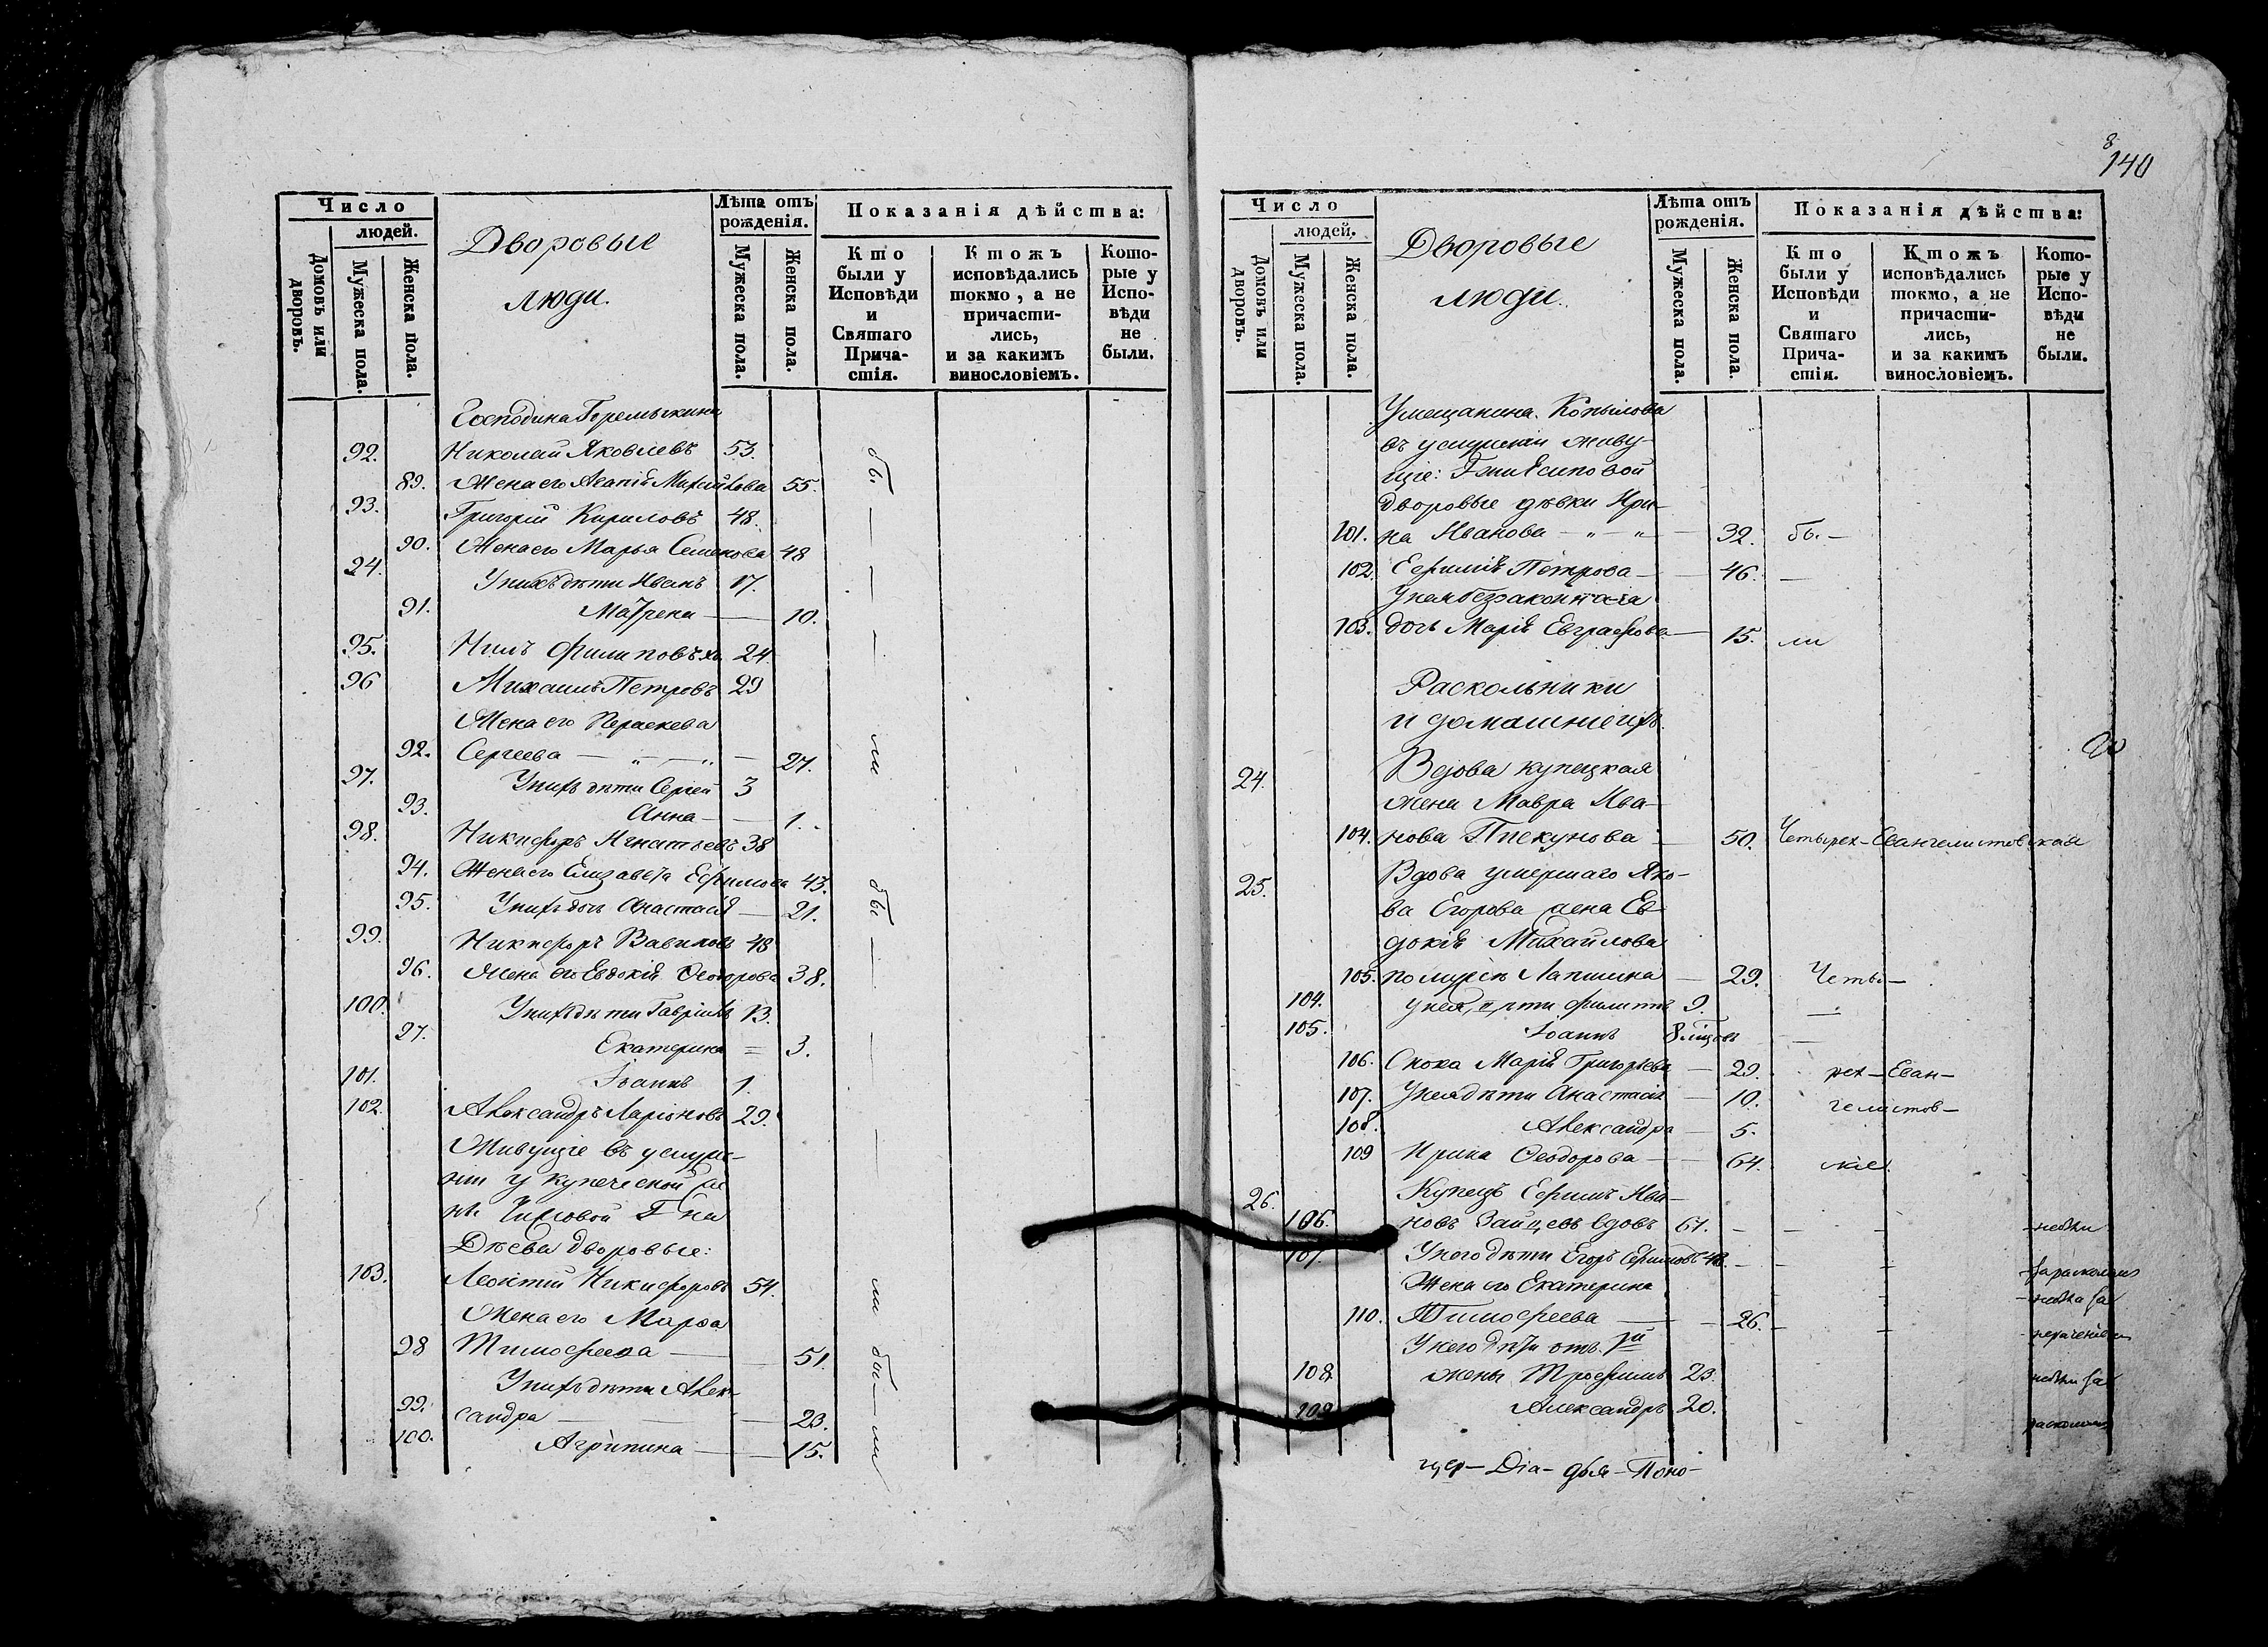 Число
людей.
Домовъ или дворовъ.
Мужеска пола.
Женска пола.
Дворовые
люди.
Лѣта отъ рожденія.
Мужеска пола.
Женска пола.
Показанія дѣйства:
Кто были у Исповѣди и Святаго Прича-стія.
Ктожъ исповѣдались токмо, а не причасти-лись, и за какимъ винословіемъ.
Кото-рые у Испо-вѣди не были.
Господина Горемыкина
92. Николай Яковлевъ 53. бы
89. Жена его 55.
93. Григорій Кириловъ 48. —
90. Жена его Марья Семенова 48
94. У нихъ дѣти Иванъ 17. —
91. Матрена — 10.
95. Нилъ Филиповъ 24 —
96 Михаилъ Петровъ 29
Жена его Параскева
92. Сергеева — „ — „ — 27. ли
97. У нихъ дѣти Сергей 3
93. Анна — 1.
98. Никифоръ Игнатьевъ 38
94. Жена его Елизавета Ефимова 43. бы
95. У нихъ дочь Анастасія — 21.
99. Никифоръ Вавиловъ 48 —
96. Жена его Евдокія Ѳеодорова 38.
100. У нихъ дѣти Гавріилъ 13.
97. Екатерина = 3. —
101. Іоаннъ 1.
102. Александръ Ларіоновъ 29.
Живущіе въ услуже-
ніи у купеческой же
ны Г жи
дворовые:
103. Леонтій Никифоровъ 54. ли
Жена его Марѳа
98 Тимофеева — 51. бы
У нихъ дѣти Алек-
99. сандра — 23. —
100. Агрипина — 15. ли
8
140
Число
людей.
Домовъ или дворовъ.
Мужеска пола.
Женска пола.
Дворовые
люди.
Лѣта отъ рожденія.
Мужеска пола.
Женска пола.
Показанія дѣйства:
Кто были у Исповѣди и Святаго Прича-стія.
Ктожъ исповѣдались токмо, а не причасти-лись, и за какимъ винословіемъ.
Кото-рые у Испо-вѣди не были.
У мещанина Копылова
въ услуженіи живу-
щіе: Г жи Есиповой
дворовые дѣвки Ири-
101. на Иванова — „ — „ 32. бы —
102. Ефимія Петрова — 46. —
У нея беззаконная
103. дочь Марія Евграфова — 15. ли
Раскольники
и домашніе ихъ.
24. Вдова купецкая
жена Мавра Ива-
104. нова — 50. Четырех-Евангелистовская
25. Вдова умершаго Яко-
ва Егорова жена Ев-
докія Михайлова
105. по мужѣ Лапшина — 29. Четы —
104. у нея дѣти Филиппъ 9. —
105. Іоаннъ 8 —
106. Сноха Марія Григорьева — 29. рех — Еван —
107. У нея дѣти Анастасія — 10. гелистов —
108. Александра — 5.
109 Ирина Ѳеодорова — 64. скіе.
26. Купецъ Ефимъ Ива-
106. новъ Зайцевъ вдовъ 67. — — — небы
107. У него дѣти Егоръ Ефимовъ 48. — — — за расколомъ
Жена его Екатерина
110. Тимофеева — 26. — —
У него дѣти отъ 1й
108 жены Трофимъ 23.
109 Александръ 20. расколомъ
Dia — дья — Поно —